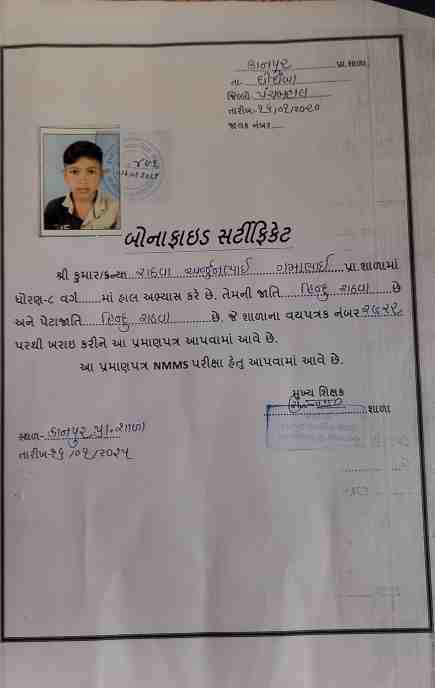 કાનપુર પ્રા.શાળા
તા- ઘોઘંબા
જિલ્લો પંચમહાલ
તારીખ-૨૬/૦૨/૨૦૨૦
જાવક નંબર
બોનાફાઇડ સર્ટીફિકેટ
શ્રી કુમાર/કન્યા રાઠવા અર્જુનભાઈ પ્રા.શાળામાં
ધોરણ-૮ વર્ગ.....માં હાલ અભ્યાસ કરે છે. તેમની જાતિ હિન્દુ રાઠવા છે
અને પેટાજાતિ હિન્દુ રાઠવા છે. જે શાળાના વયપત્રક નંબર
પરથી ખરાઇ કરીને આ પ્રમાણપત્ર આપવામાં આવે છે.
આ પ્રમાણપત્ર NMMS પરીક્ષા હેતુ આપવામાં આવે છે.
મુખ્ય શિક્ષક
શાળા
સ્થળ- કાનપુર પ્રા.શાળા
તારીખ-૨૬/૦૨/૨૦૨૫